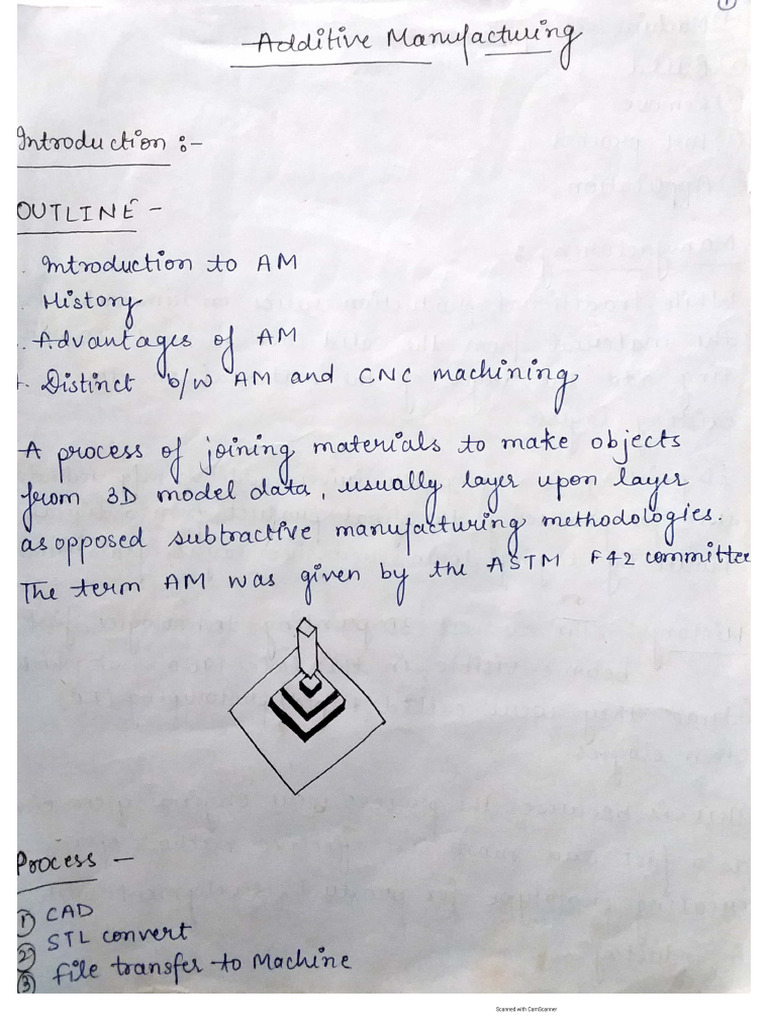 1
Additive Manufacturing
Introduction :-
OUTLINE -
. Introduction to AM
. History
. Advantages of AM
. Distinct b/w AM and CNC machining
A process of joining materials to make objects
from 3D model data, usually layer upon layer
as opposed subtractive manufacturing methodologies.
The term AM was given by the ASTM F42 committee
Process -
① CAD
② STL convert
③ file transfer to Machine
Scanned with CamScanner